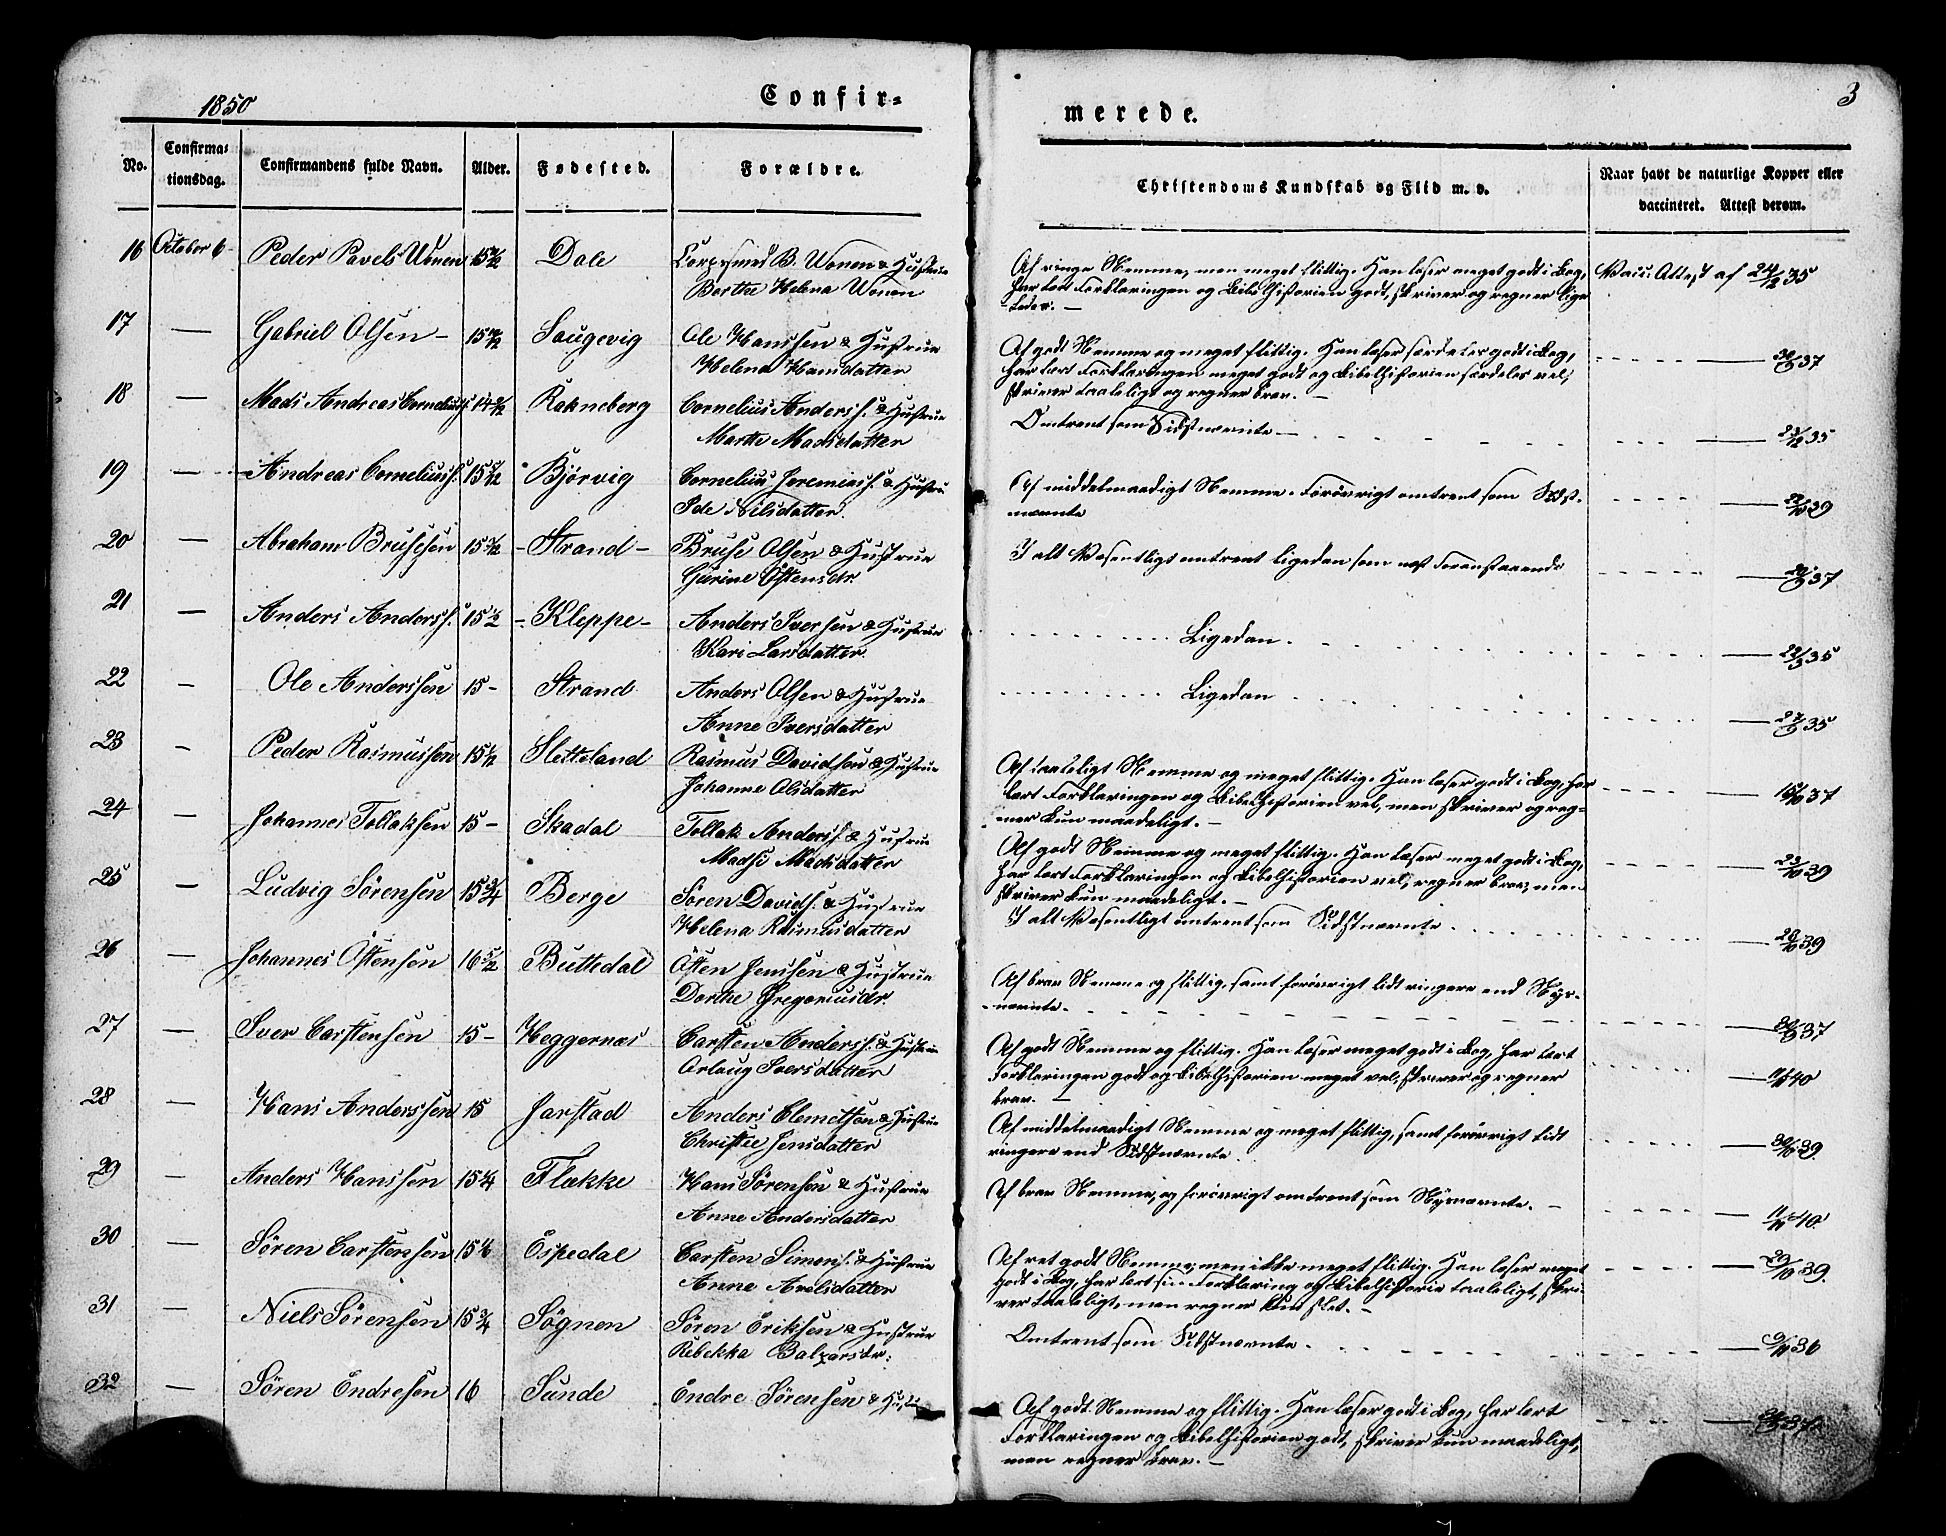 1850
Confir=
merede.
3
No.
Confirma=
tionsdag.
Confirmandens fulde Navn.
Alder.
Fødested.
Forældre.
Christendoms Kundskab og Flid m. v.
Naar havt de naturlige Kopper eller
vaccineret. Attest derom.
16 October 6 Peder Pavels Wonen Dale B. Wonen & Hustrue
Berthe Helena Wonen
Af ringe Nemme, men meget flittig. Han læser meget godt i Bog,
har lært Forklaringen og Bibelhistorien godt, skriver og regner lige
ledes. —
Vacc: Attest af 24/12 35
17 — Gabriel Olsen — Saugevig Ole Hanssen & Hustrue
Helena Hansdatter
Af godt Nemme og meget flittig. Han læser særdeles godt i Bog,
har lært Forklaringen meget godt og Bibelhistorien særdeles vel,
skriver taaleligt og regner brav. —
37
18 — Mads Andreas Corneliuss. Rakneberg Cornelius Anderss. & Hustrue
Marthe Madsdatter
Omtrent som Sidstnævnte —
35
19 — Andreas Corneliuss. Bjørvig Cornelius Jeremiass. & Hustru
Ide Nilsdatter.
Af middelmaadigt Nemme. Forøvrigt omtrent som Sidst-
nævnte
39
20 — Abraham Brusesen Strand — Bruse Olsen & Hustrue
Gurine Østensdr
I alt Væsentligt omtrent ligedan som næst Foranstaaende
37
21 — Anders Anderss. 15 1/2 Kleppe — Anders Iversen & Hustrue
Kari Larsdatter
Ligedan.
35
22 — Ole Anderssen 15 — Strand Anders Olsen & Hustrue
Anne Iversdatter
Ligedan
35
23 — Peder Rasmussen Sletteland Rasmus Davidsen & Hustrue
Johanne Olsdatter
Af taaleligt Nemme og meget flittig. Han læser godt i Bog, har
lært Forklaringen og Bibelhistorien vel, men skriver og reg-
ner kun maadeligt. —
37
24 — Johannes Tollaksen 15 — Skadal Tollak Anderss. & Hustrue
Madsi Madsdatter
Af godt Nemme og meget flittig. Han læser meget godt i Bog,
har lært Forklaringen og Bibelhistorien vel, regner brav, men
skriver kun maadeligt. —
39
25 — Ludvig Sörensen 15 3/4 Berge Sören Davids. & Hustrue
Helena Rasmusdatter
I alt Væsentligt omtrent som Sidstnævnte
39
26 — Johannes Östensen Buttedal Østen Jenssen & Hustrue
Dorthe Gregoriusdr.
Af brav Nemme og flittig, samt forøvrigt lidt ringere end Nys-
nævnte.
37
27 — Iver Carstensen 15 — Heggernæs Carsten Anderss. & Hustrue
Orlaug Iversdatter
Af godt Nemme og flittig. Han læser meget godt i Bog, har lært
Forklaringen godt og Bibelhistorien meget vel, skriver og regner
brav. —
40
28 — Hans Anderssen 15 Jarstad Anders Clemetsen & Hustrue
Christie Jensdatter
Af middelmaadigt Nemme og meget flittig, samt forøvrigt lidt
ringere end Sidstnævnte.
39
29 — Anders Hanssen 15 1/4 Flekke Hans Sörensen & Hustrue
Anne Andersdatter
Af brav Nemme, og forøvrigt omtrent som Nysnævnte. —
40
30 — Sören Carstensen Espedal Carsten Simons. & Hustrue
Anne Arelsdatter
Af ret godt Nemme, men ikke meget flittig. Han læser meget
godt i Bog, har lært sin Forklaring og Bibelhistorie taaleligt, skri-
ver taaleligt, men regner kun slet. —
39
31 — Niels Sörensen 15 3/4 Sögnen Sören Eriksen & Hustrue
Rebekka Balzarsdr.
Omtrent som Sidstnævnte.
36
32 — Sören Endresen 16 Sunde Endre Sörensen &
Af godt Nemme og flittig. Han læser godt i Bog, har lært
Forklaringen og Bibelhistorien godt, skriver kun maadeligt,
men regner brav. —